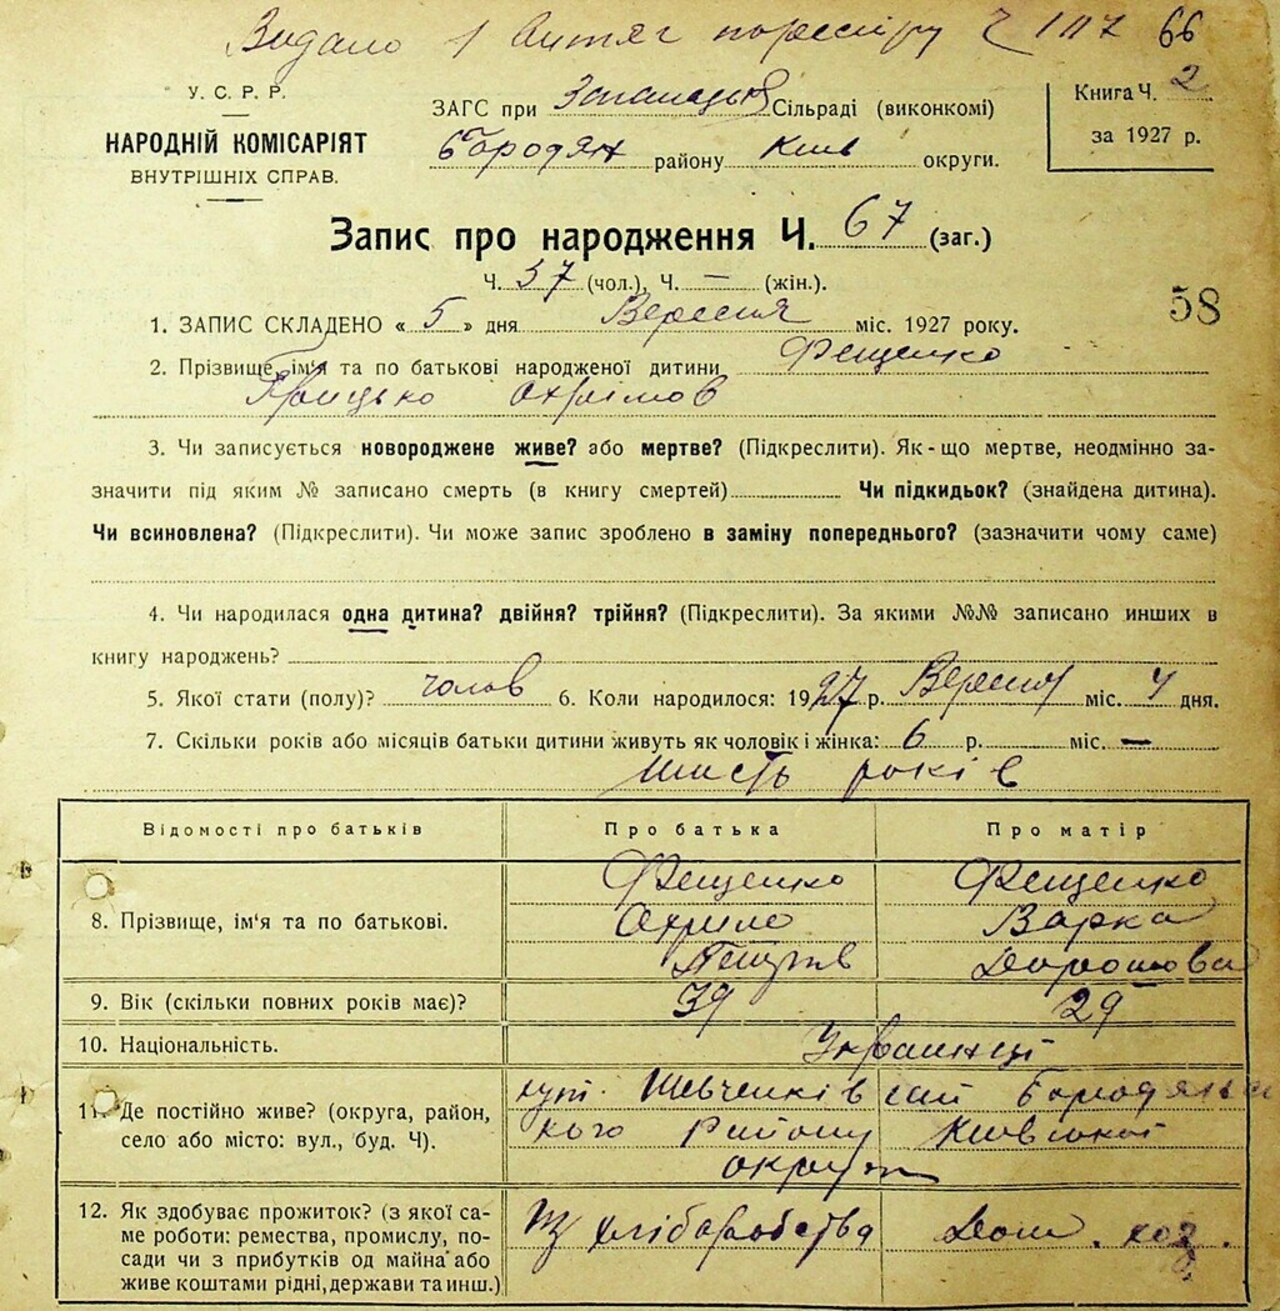 Видано 1 витяг по реєстру Ч 107 66
У. С. Р. Р.
НАРОДНІЙ КОМІСАРІЯТ
ВНУТРІШНІХ СПРАВ.
ЗАГС при Сільраді (виконкомі)
Бородян району Київ округи.
Книга Ч. 2
за 1927 р.
Запис про народження Ч. 67 (заг.)
Ч. 37 (чол.), Ч. — (жін.).
58
1. ЗАПИС СКЛАДЕНО « 5 » дня Вересня міс. 1927 року.
2. Прізвище, ім'я та по батькові народженої дитини Фещенко
Грицько Охрімов
3. Чи записується новороджене живе? або мертве? (Підкреслити). Як-що мертве, неодмінно за-
значити під яким № записано смерть (в книгу смертей) Чи підкидьок? (знайдена дитина).
Чи всиновлена? (Підкреслити). Чи може запис зроблено в заміну попереднього? (зазначити чому саме)
4. Чи народилася одна дитина? двійня? трійня? (Підкреслити). За якими №№ записано инших в
книгу народжень?
5. Якої стати (полу)? чолов 6. Коли народилося: 1927 р. Вересня міс. 4 дня.
7. Скільки років або місяців батьки дитини живуть як чоловік і жінка: 6 р. міс. —
шість років
Відомості про батьків Про батька Про матір
8. Прізвище, ім'я та по батькові.
Фещенко
Охрім
Фещенко
Варка
9. Вік (скільки повних років має)? 39 29
10. Національність. Українці
11. Де постійно живе? (округа, район,
село або місто: вул., буд. Ч).
хут. Шевченків
кого Району Київської
округи
12. Як здобуває прожиток? (з якої са-
ме роботи: ремества, промислу, по-
сади чи з прибутків од майна або
живе коштами рідні, держави та инш.)
Із хліборобства Дом. хоз.